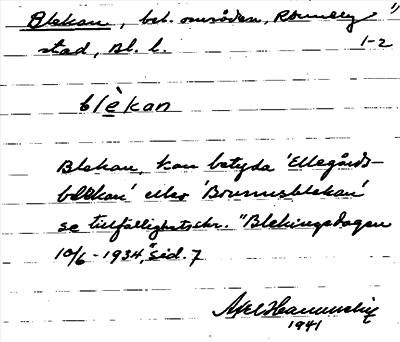 Blekan, bet. områden, Ronneby "
stad, Bl. l. 1-2
blèkan
Blekan, kan betyda 'Ellegårds-
blekan' eller 'Brunnsblekan'
se tillfällighetsskr. "Blekingsdagen
10/6 - 1934," sid. 7
Axel
1941